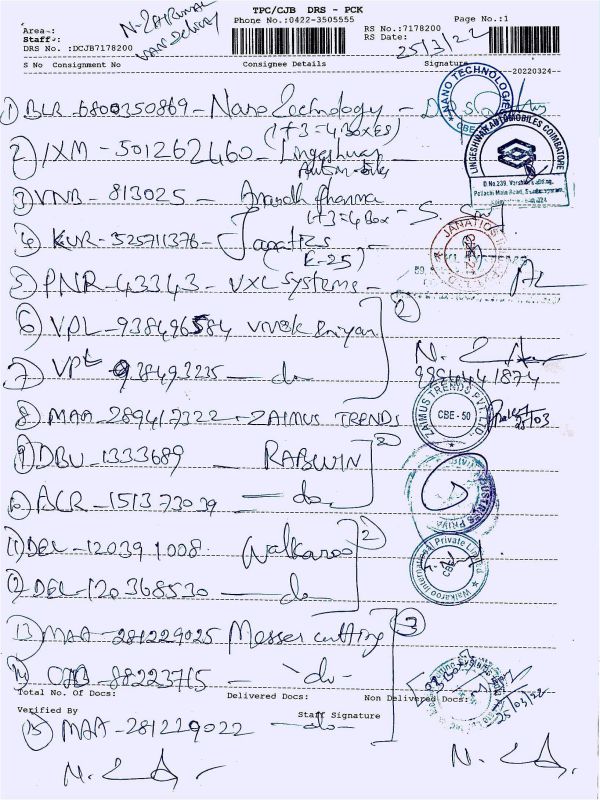 TPC/CJB DRS - PCK
Area-:
Staff-:
DRS No. :DCJB7178200
Phone No.:0422-3505555
RS No.:7178200
RS Date:
25/3/22
Page No.:1
S No Consignment No Consignee Details Signature
20220324
1) BLR - 6800350869 - Nano Technology
(1+3=4 BOXES)
2) IXM - 501262460 - Lingeshwar
Automobiles
3) VNB - 813025 - Anandh Pharma
1+3=4 Box
4) KUR - 525711376 - Janatics
(K-25)
5) PNR - 43343 - VXL Systems
6) VPL - 938496584 Vivek Eniyan
7) VPL - 938493235 - do
9894441874
8) MAA - 289417322 - ZAIMUS TRENDS
9) DBU - 1333689 - RABWIN
10) ACR - 151373039 - do
11) DEL - 120391008 Walkaroo
12) DEL - 120368530 - do
13) MAA - 281229025 Messer cutting
14) OJB - 88223715 - do -
15) MAA - 281229022 - do -
NANO TECHNOLOGIES
CBE
LINGESHWAR AUTOMOBILES COIMBATORE
D.No.239,
Pollachi Main Road,
JANATICS
ZAIMUS TRENDS PVT.LTD.
CBE - 50
Walkaroo International Private Limited
CBE
Total No. Of Docs: Delivered Docs: Non Delivered Docs:
Verified By Staff Signature